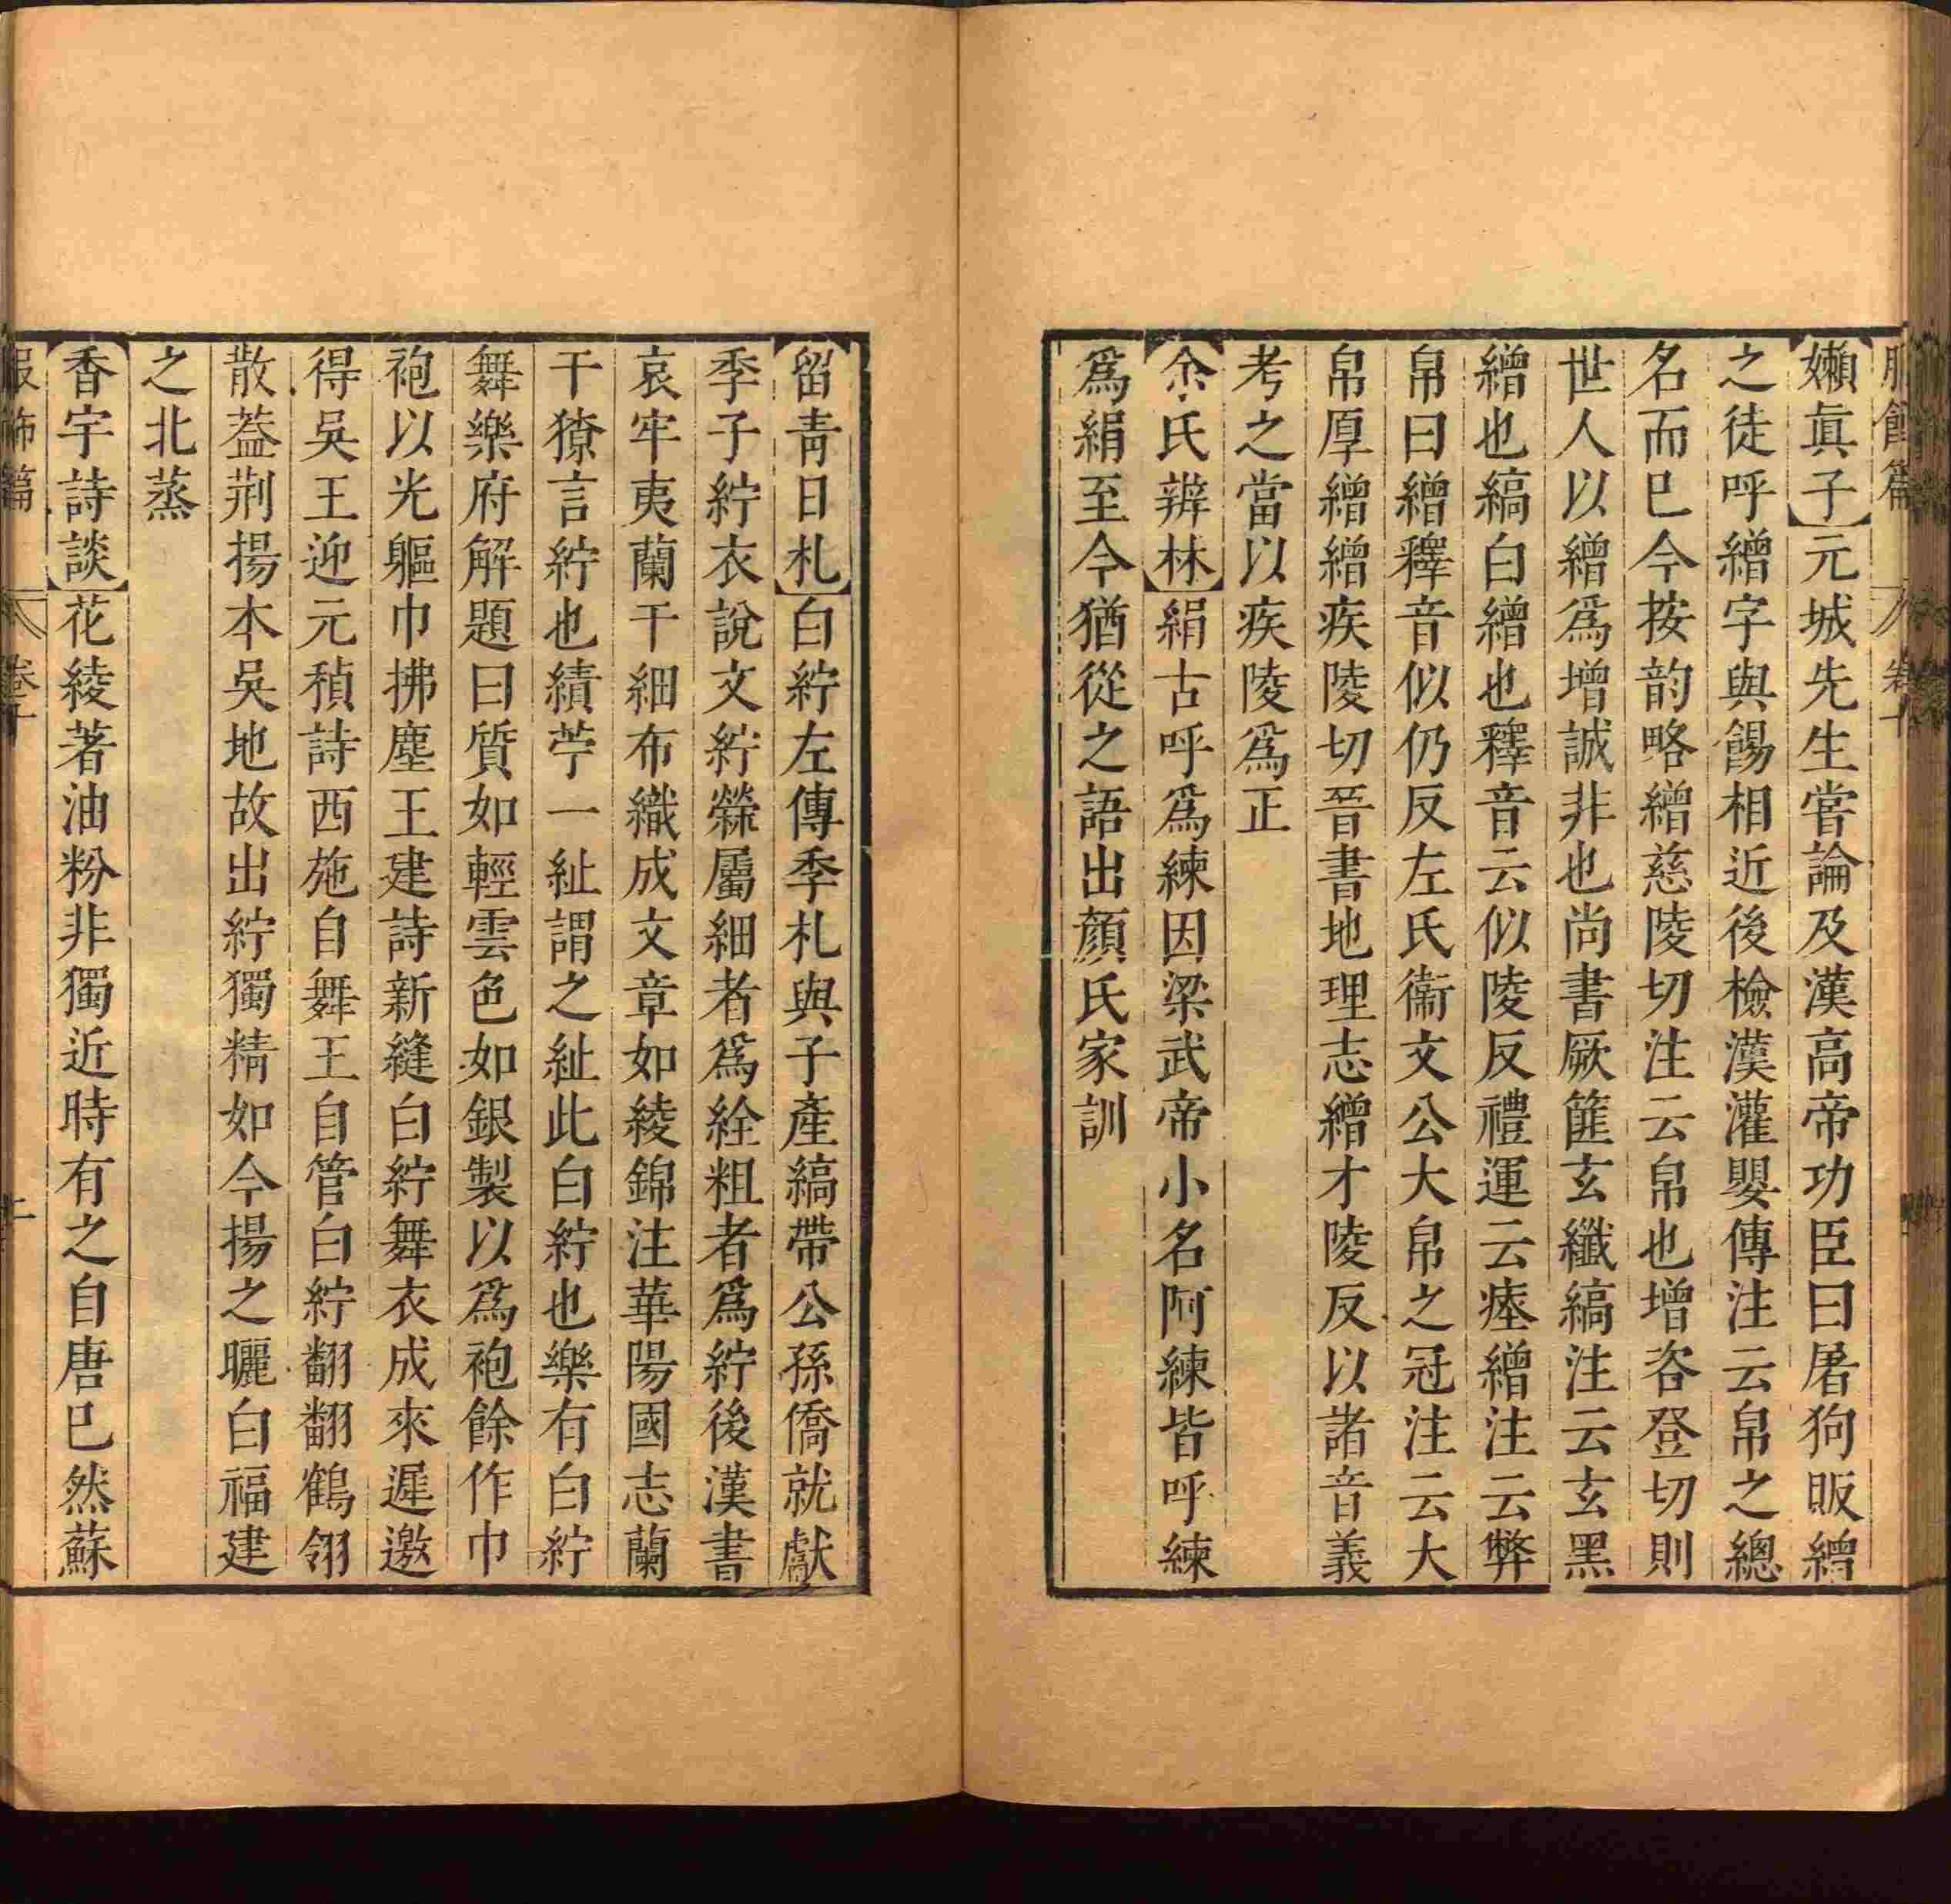 服飾篇 卷十
【嬾眞子】元城先生嘗論及漢高帝功臣曰屠狗販繒
之徒呼繒字與餳相近後檢漢灌嬰傳注云帛之總
名而巳今按韵略繒慈陵切注云帛也增咨登切則
世人以繒爲增誠非也尚書厥篚玄纖縞注云玄黑
繒也縞白繒也釋音云似陵反禮運云瘞繒注云弊
帛曰繒釋音似仍反左氏衞文公大帛之冠注云大
帛厚繒繒疾陵切晉書地理志繒才陵反以諸音義
考之當以疾陵爲正
【余氏辨林】絹古呼爲練因梁武帝小名阿練皆呼練
爲絹至今猶從之語出顏氏家訓
【留青日札】白紵左傳季札與子產縞帶公孫僑就獻
季子紵衣說文紵縈屬細者爲絟粗者爲紵後漢書
哀牢夷蘭干細布織成文章如綾錦注華陽國志蘭
干獠言紵也績苧一紪謂之紪此白紵也樂有白紵
舞樂府解題曰質如輕雲色如銀製以爲袍餘作巾
袍以光軀巾拂塵王建詩新縫白紵舞衣成來遲邀
得吳王迎元稹詩西施自舞王自管白紵翻翻鶴翎
散蓋荆揚本吳地故出紵獨精如今揚之曬白福建
之北蒸
【香宇詩談】花綾著油粉非獨近時有之自唐巳然蘇
服飾篇 卷十 十